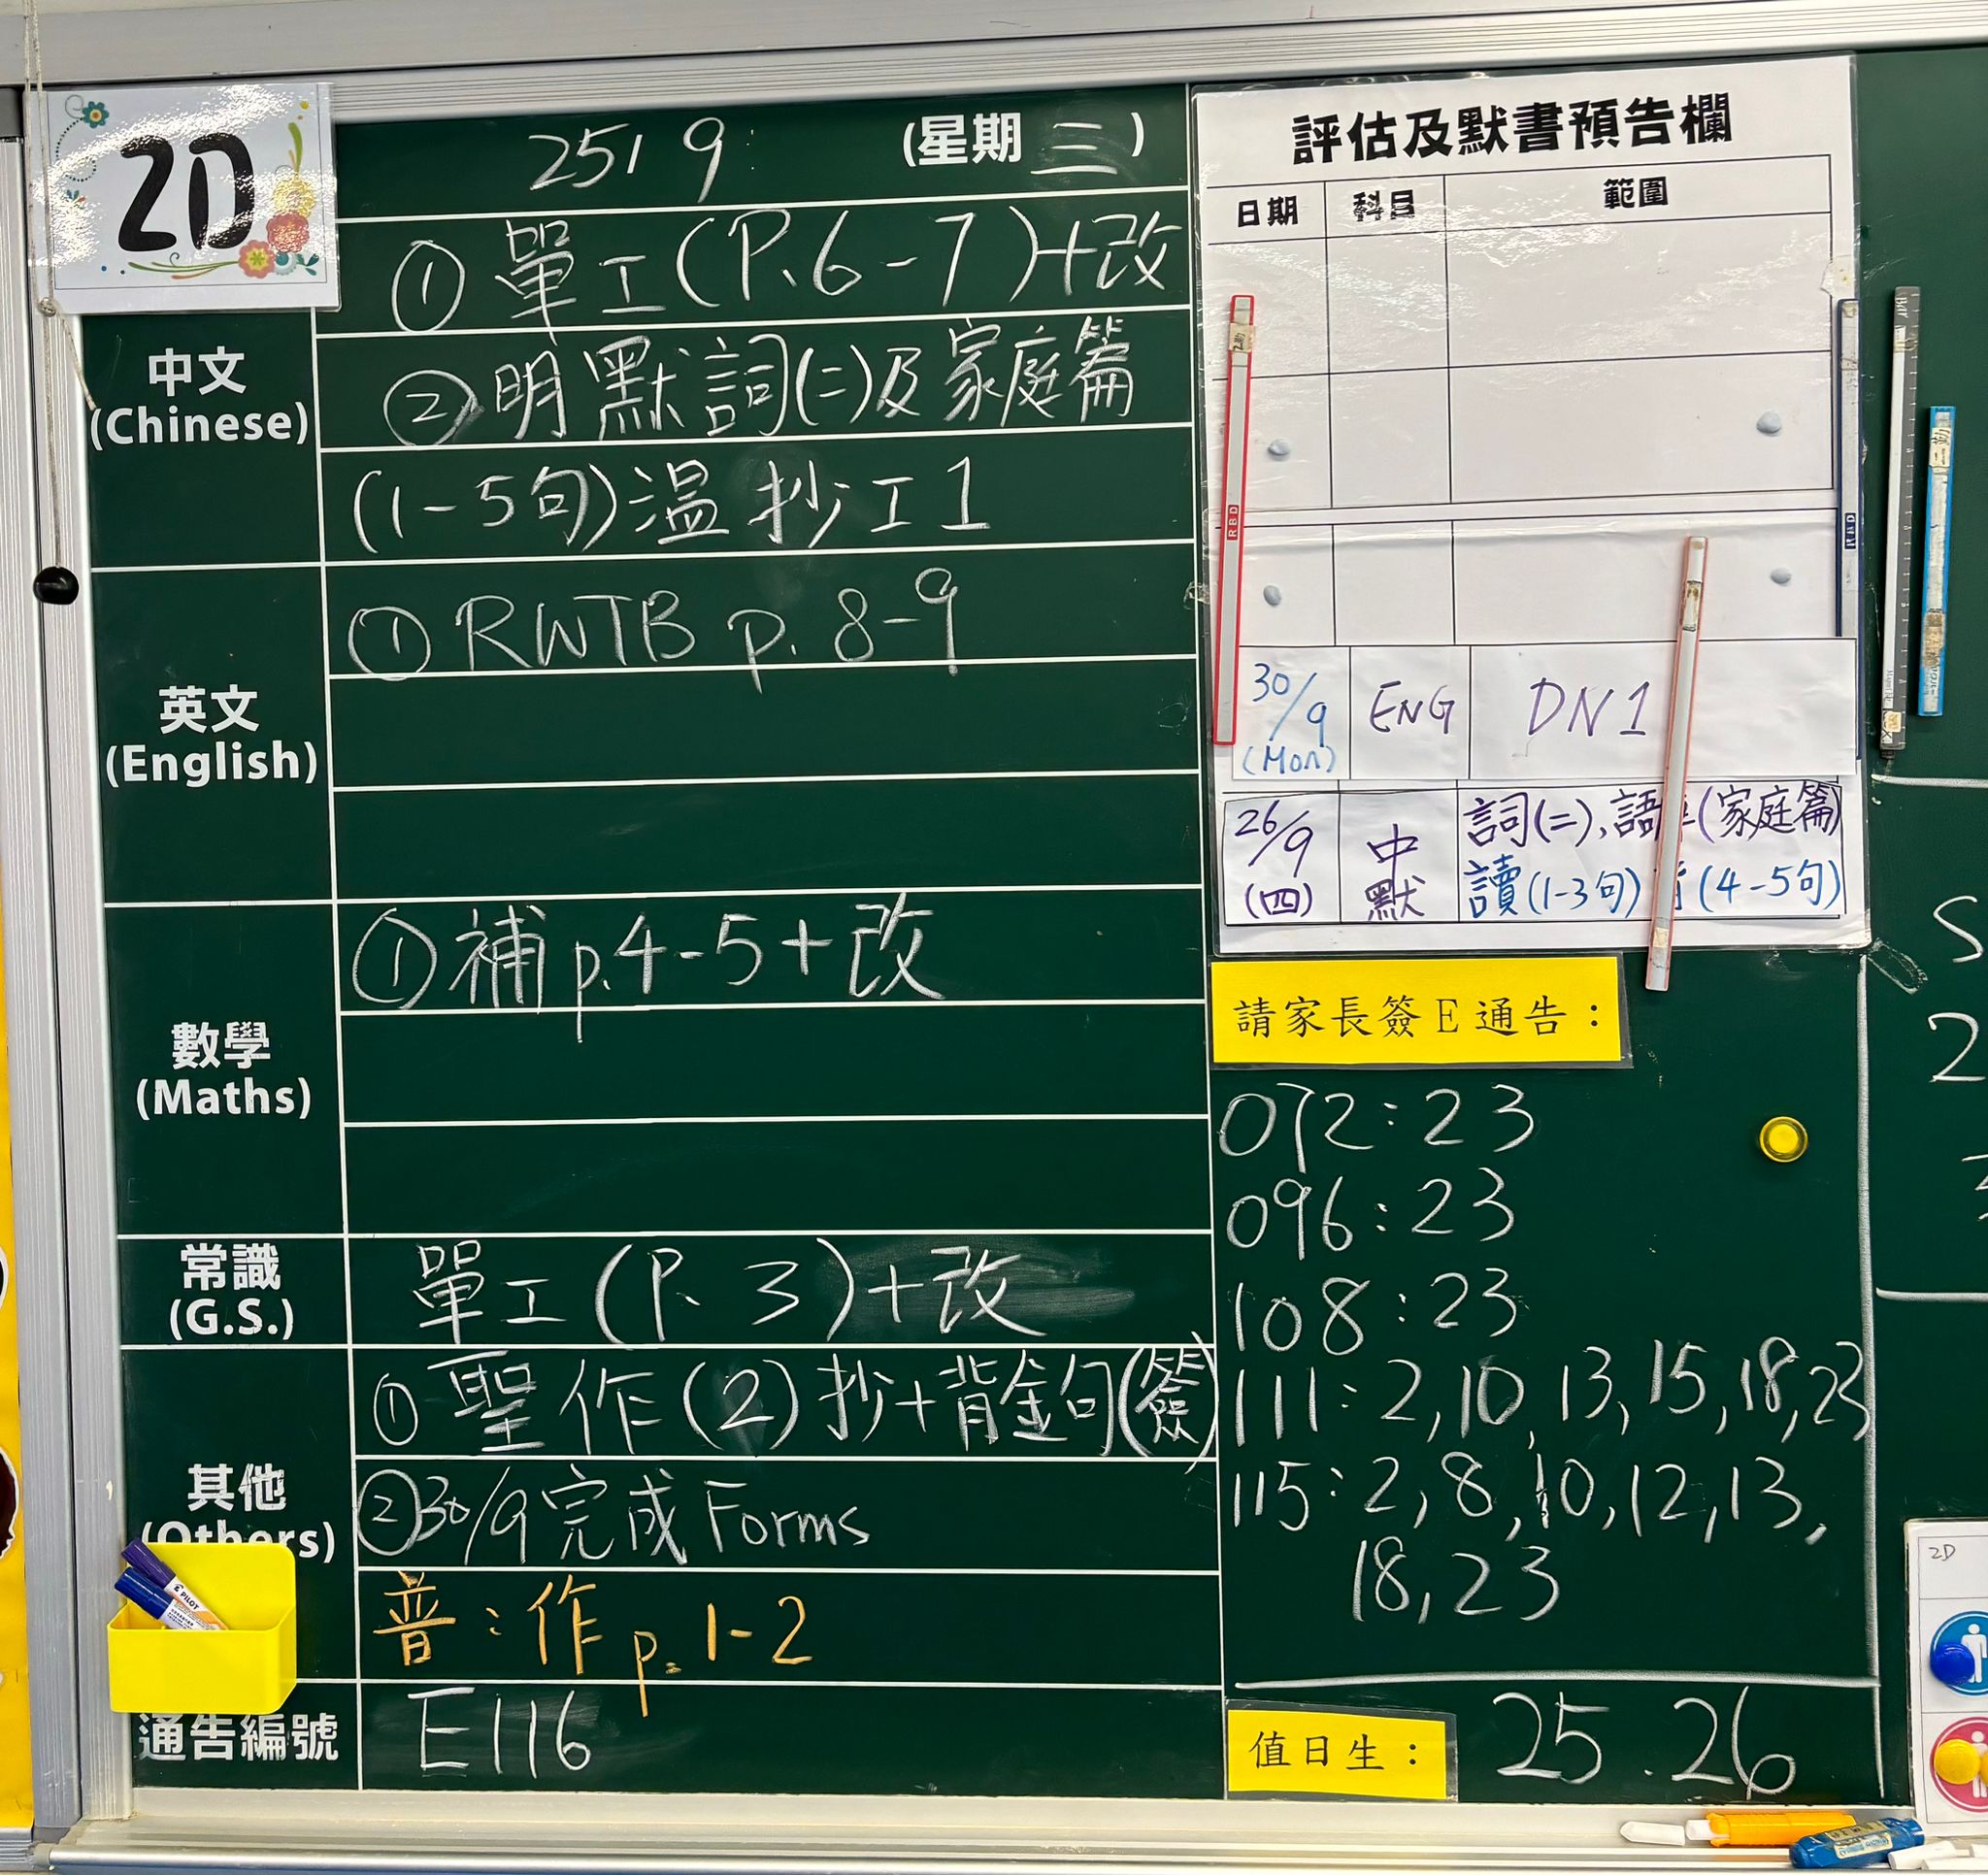 2D
25 9 (星期三)
中文
(Chinese)
① 單工(P.6-7)+改
② 明默詞(二)及家庭篇
(1-5句)溫抄工1
英文
(English)
① RWTB p. 8-9
數學
(Maths)
① 補 p.4-5+改
常識
(G.S.)
單工(P.3)+改
其他
(Others)
① 聖作(2)抄+背金句(簽)
② 30/9完成Forms
普:作 p.1-2
通告編號
E116
評估及默書預告欄
日期 科目 範圍
30/9 (Mon) ENG DN1
26/9 (四) 中默 詞(二), 語 (家庭篇)
讀(1-3句) (4-5句)
請家長簽E通告:
072:23
096:23
108:23
111:2,10,13,15,18,23
115:2,8,10,12,13,
18,23
值日生:
25.26
S
2
2D
PILOT
RBD